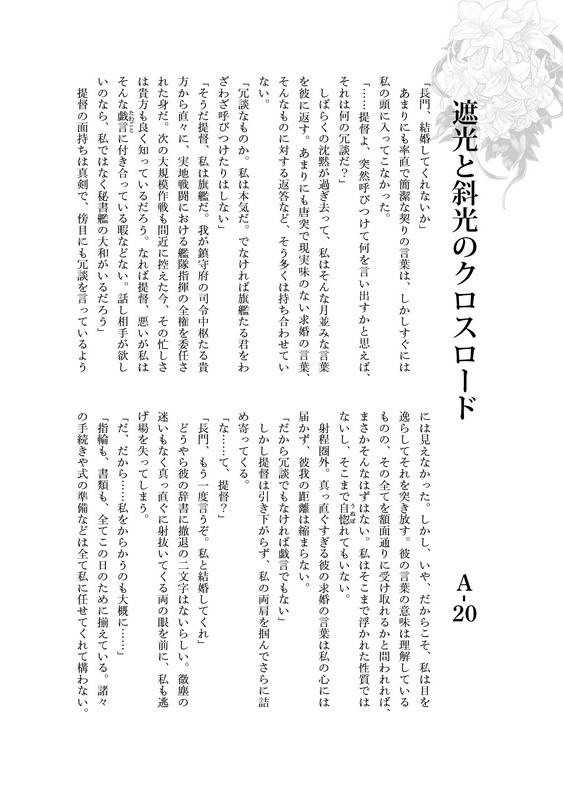 遮光と斜光のクロスロード
A-20
「長門、結婚してくれないか」
　あまりにも率直で簡潔な契りの言葉は、しかしすぐには
私の頭に入ってこなかった。
「……提督よ、突然呼びつけて何を言い出すかと思えば、
それは何の冗談だ？」
　しばらくの沈黙が過ぎ去って、私はそんな月並みな言葉
を彼に返す。あまりにも唐突で現実味のない求婚の言葉、
そんなものに対する返答など、そう多くは持ち合わせてい
ない。
「冗談なものか。私は本気だ。でなければ旗艦たる君をわ
ざわざ呼びつけたりはしない」
「そうだ提督、私は旗艦だ。我が鎮守府の司令中枢たる貴
方から直々に、実地戦闘における艦隊指揮の全権を委任さ
れた身だ。次の大規模作戦も間近に控えた今、その忙しさ
は貴方も良く知っているだろう。なれば提督、悪いが私は
そんな戯言たわごとに付き合っている暇などない。話し相手が欲し
いのなら、私ではなく秘書艦の大和がいるだろう」
　提督の面持ちは真剣で、傍目にも冗談を言っているよう
には見えなかった。しかし、いや、だからこそ、私は目を
逸らしてそれを突き放す。彼の言葉の意味は理解している
ものの、その全てを額面通りに受け取れるかと問われれば、
まさかそんなはずはない。私はそこまで浮かれた性質では
ないし、そこまで自惚うぬぼれてもいない。
　射程圏外。真っ直ぐすぎる彼の求婚の言葉は私の心には
届かず、彼我の距離は縮まらない。
「だから冗談でもなければ戯言でもない」
　しかし提督は引き下がらず、私の両肩を掴んでさらに詰
め寄ってくる。
「な……て、提督？」
「長門、もう一度言うぞ。私と結婚してくれ」
　どうやら彼の辞書に撤退の二文字はないらしい。微塵の
迷いもなく真っ直ぐに射抜いてくる両の眼を前に、私も逃
げ場を失ってしまう。
「だ、だから……私をからかうのも大概に……」
「指輪も、書類も、全てこの日のために揃えている。諸々
の手続きや式の準備などは全て私に任せてくれて構わない。